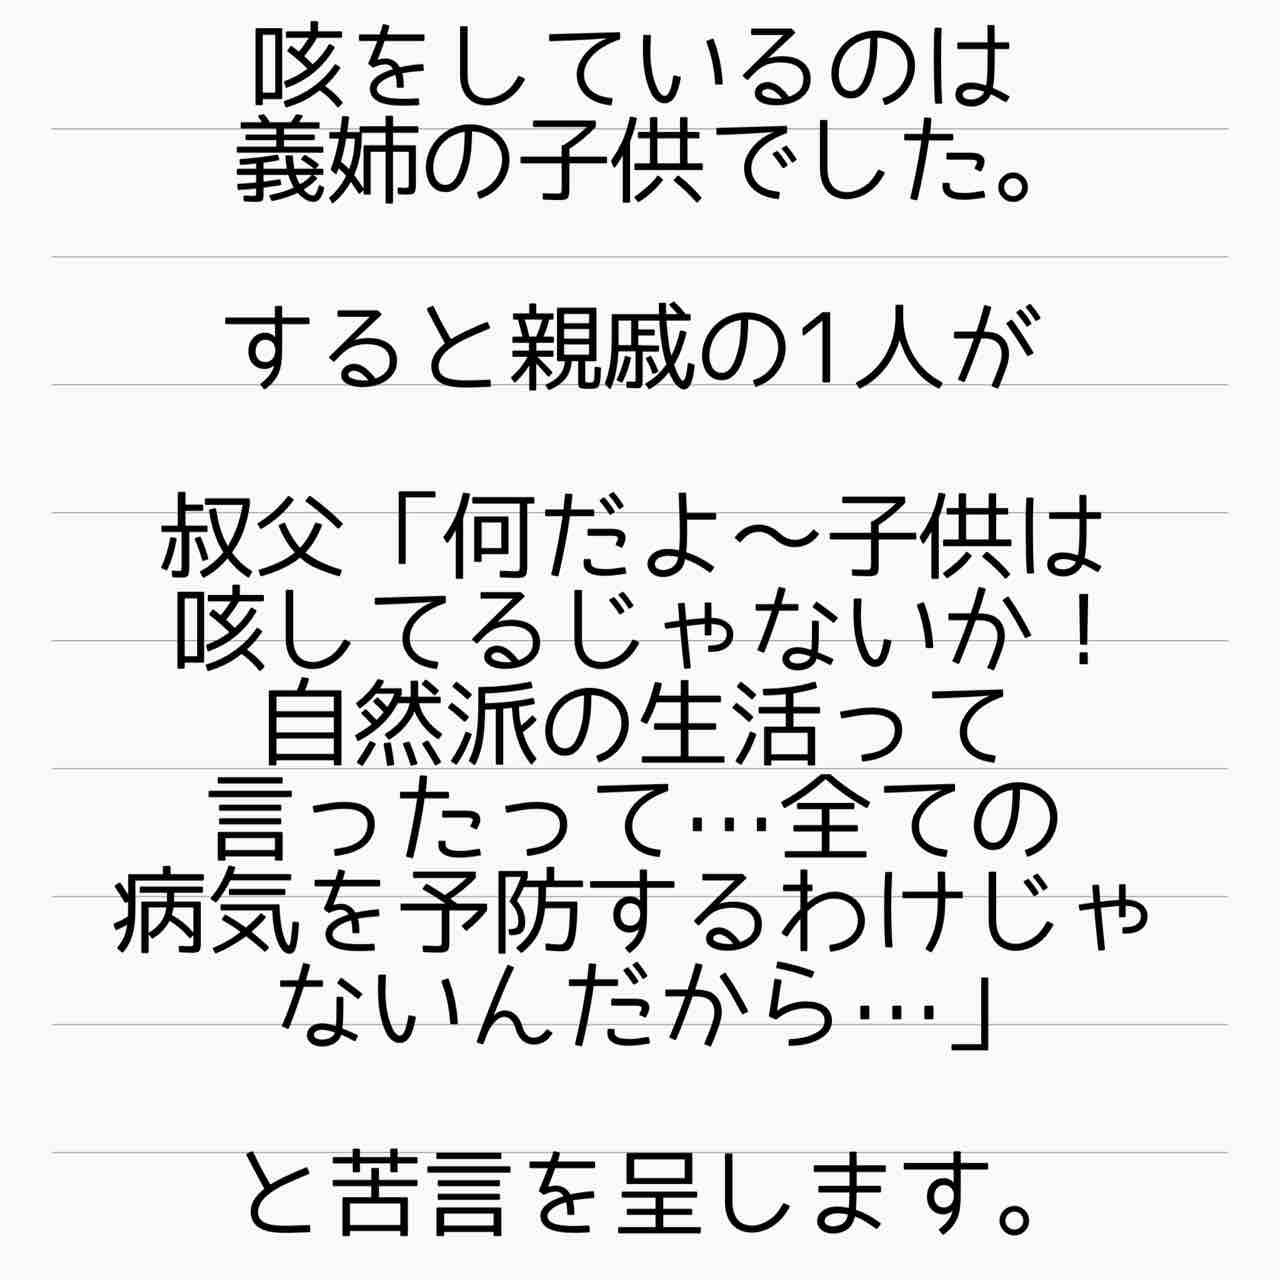 咳をしているのは
義姉の子供でした。
すると親戚の1人が
叔父「何だよ〜子供は
咳してるじゃないか！
自然派の生活って
言ったって…全ての
病気を予防するわけじゃ
ないんだから…」
と苦言を呈します。